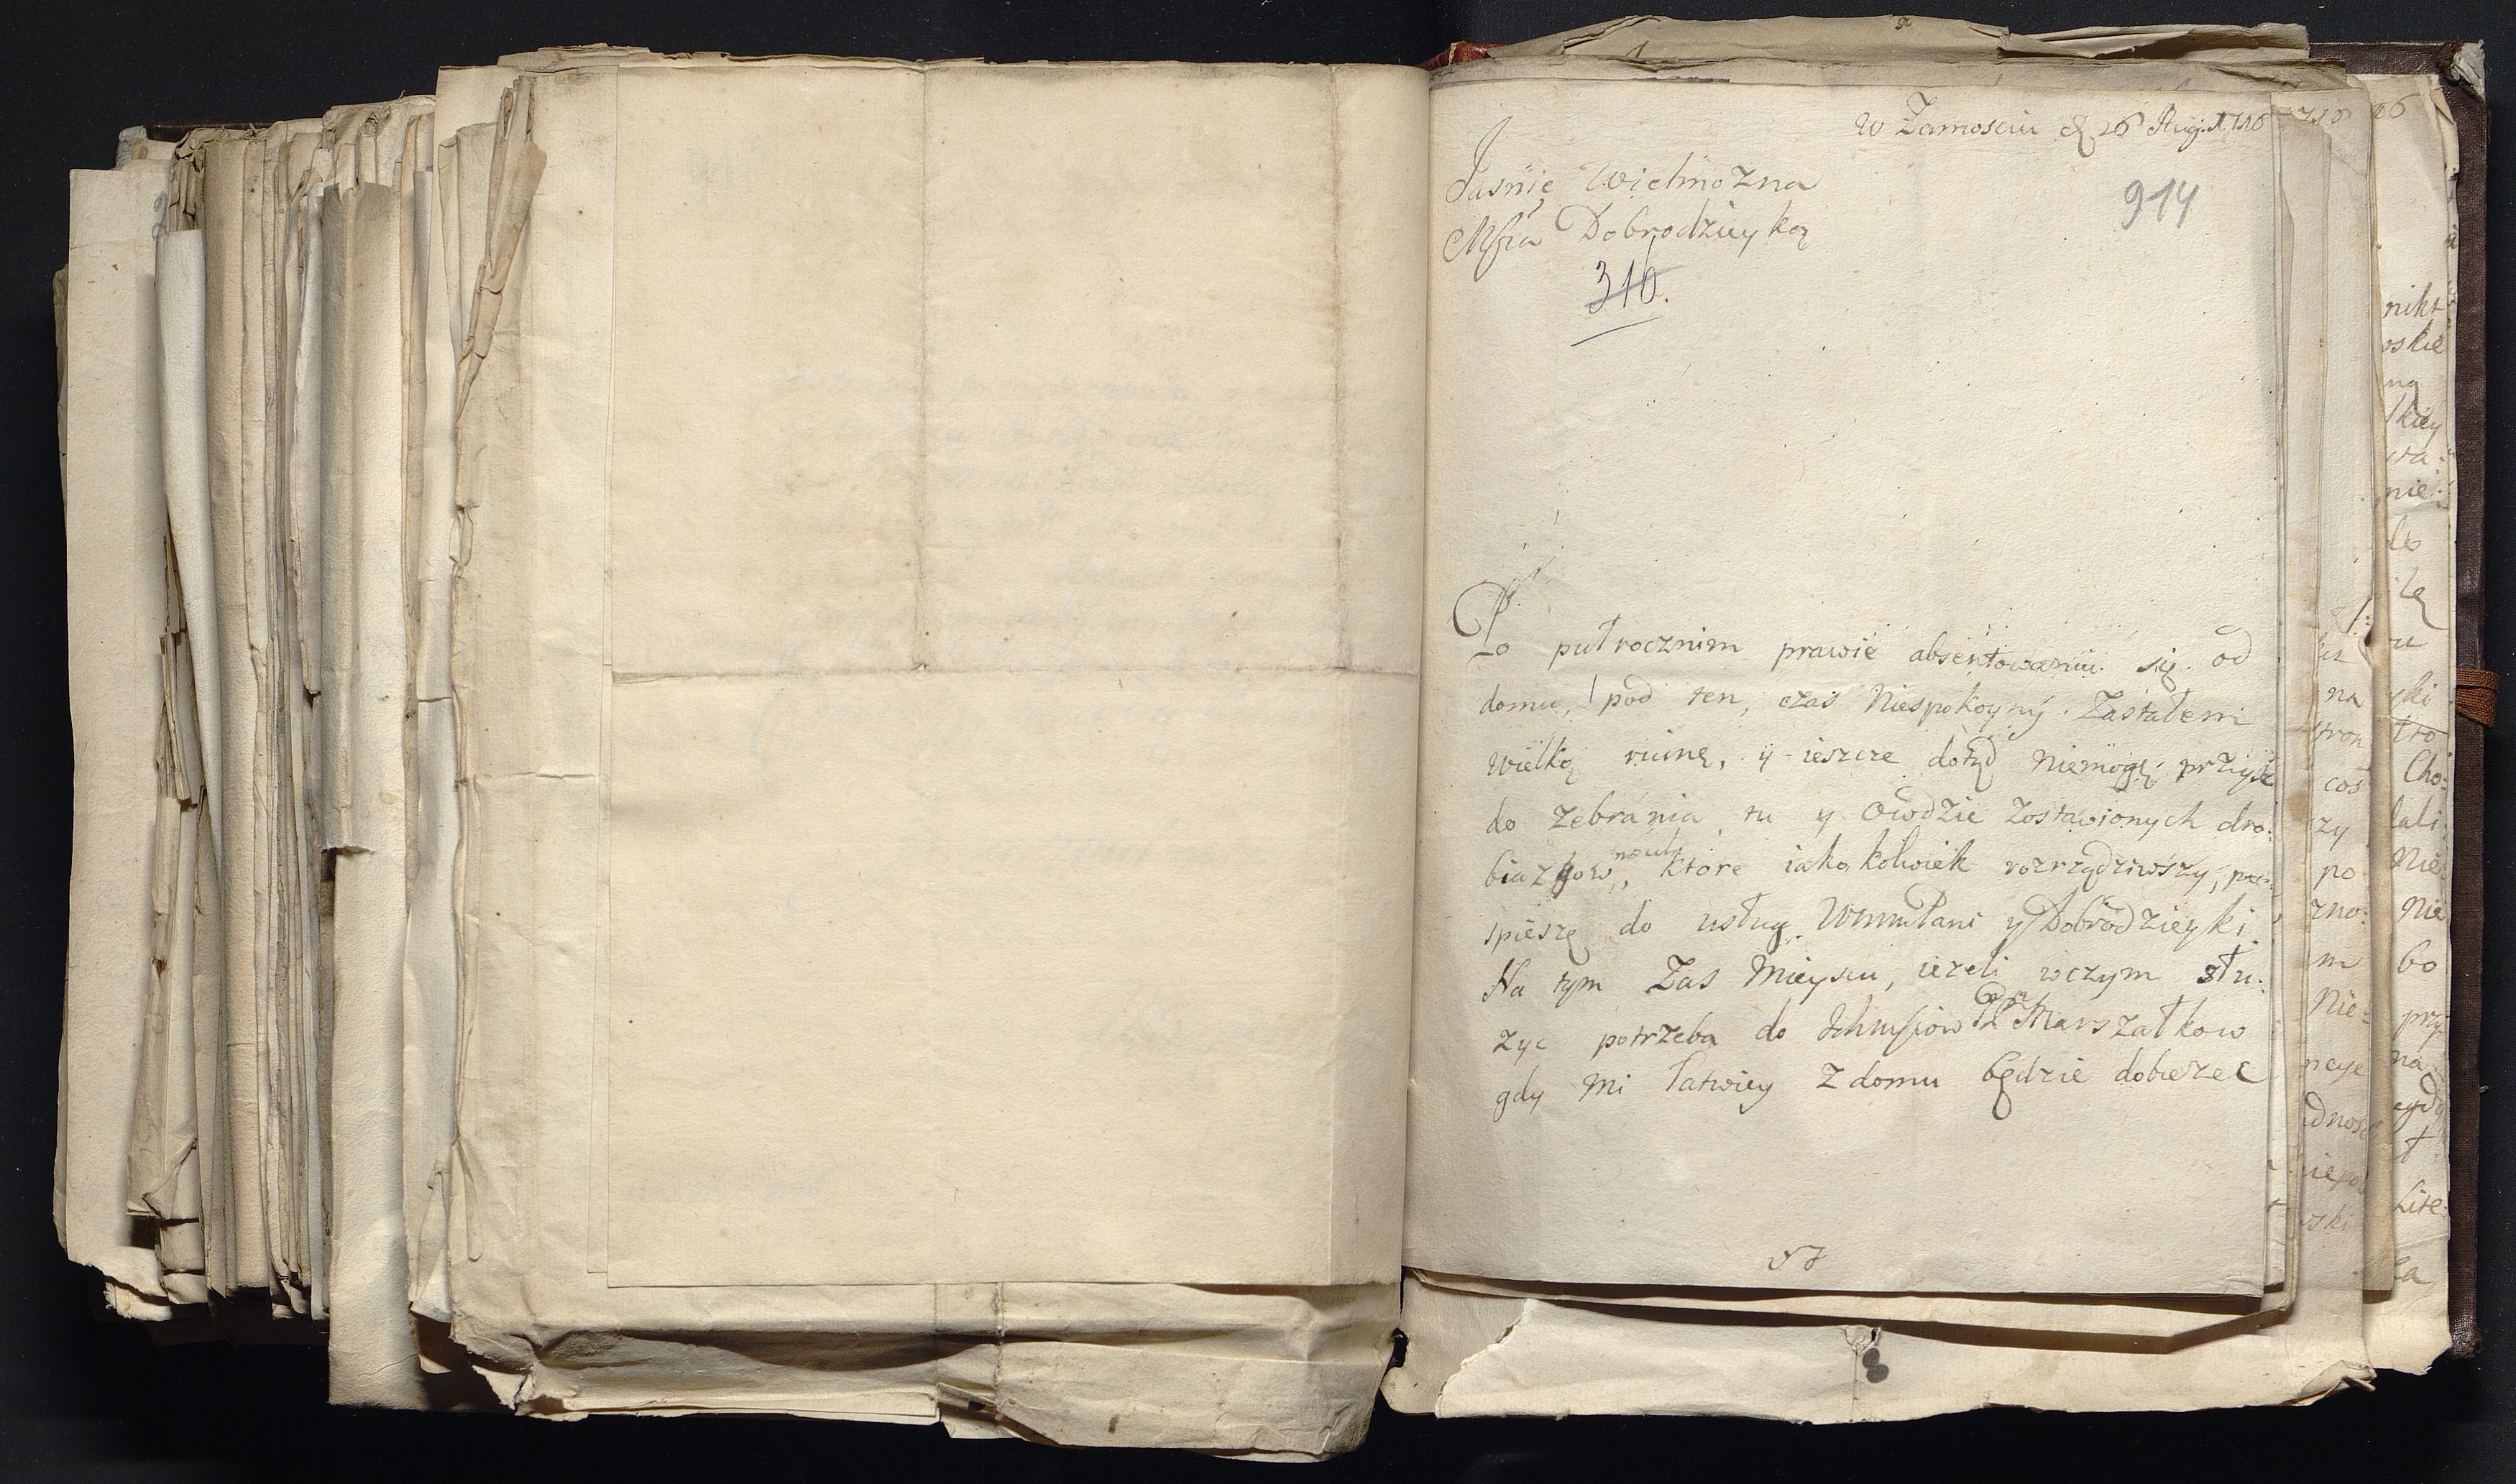 w Zamosciu d 26 Aug. A 1716
914
Jasnie Wielmozna
Mscia Dobrodzieyko
316.
Po pułrocznim prawie absentowaniu się od
domu, pod ten, czas Niespokoyny. Zastałem
wielką ruinę, y ieszcze dotąd niemogę przyisc
do zebrania tu y owdzie zostawionych dro:
biazgow, ktore iakokolwiek rozrządziwszy,
spieszę do usług WmmPani y Dobrodzieyki.
Na tym Zas Mieyscu, iezeli wczym słu:
zyc potrzeba do Ichmsciow PP Marszałkow
gdy mi łatwiey z domu będzie dobiezec
nikt
oskie
ną
nie
na
stron
cos
zy
po
zno:
m
Nie:
Cho:
lali
Nie
bo
na
Lite